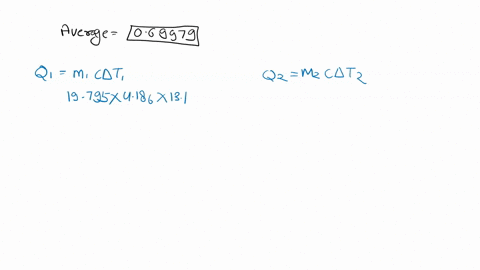 Average = 0.69979
Q1 = m1 CΔT1
19.795×4.186×13.1
Q2 = m2 CΔT2